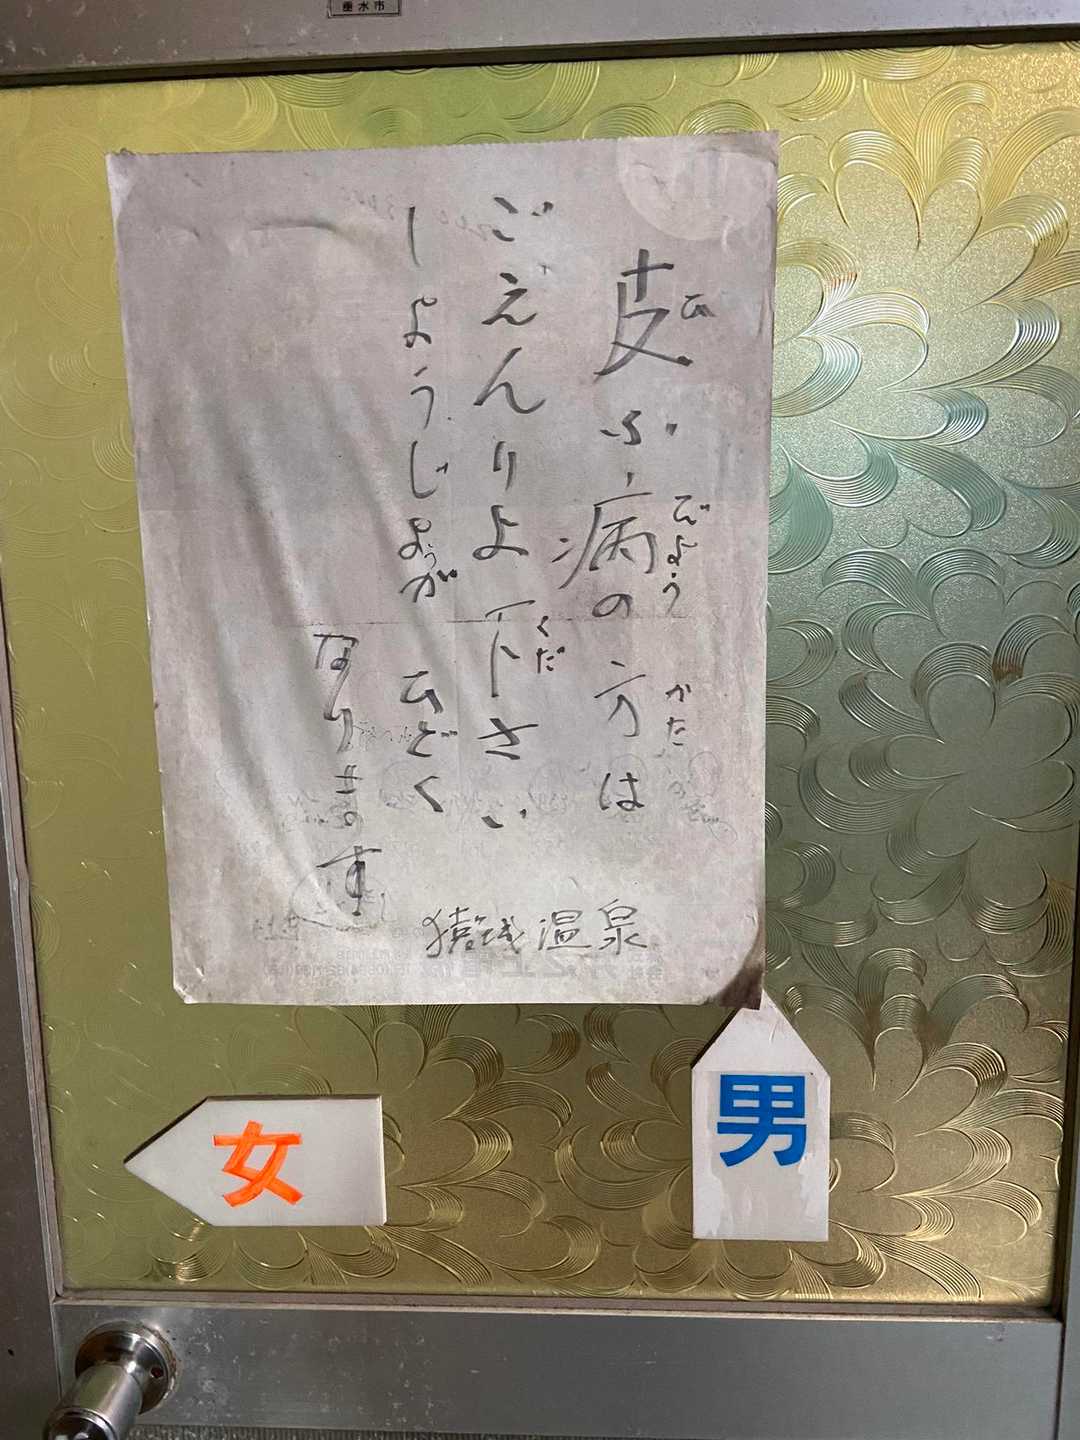 垂水市
皮ふ病の方は
ひ びょう かた
ごえんりよ下さい
くだ
しようじょうが ひどく
なります
猿城温泉
女
男